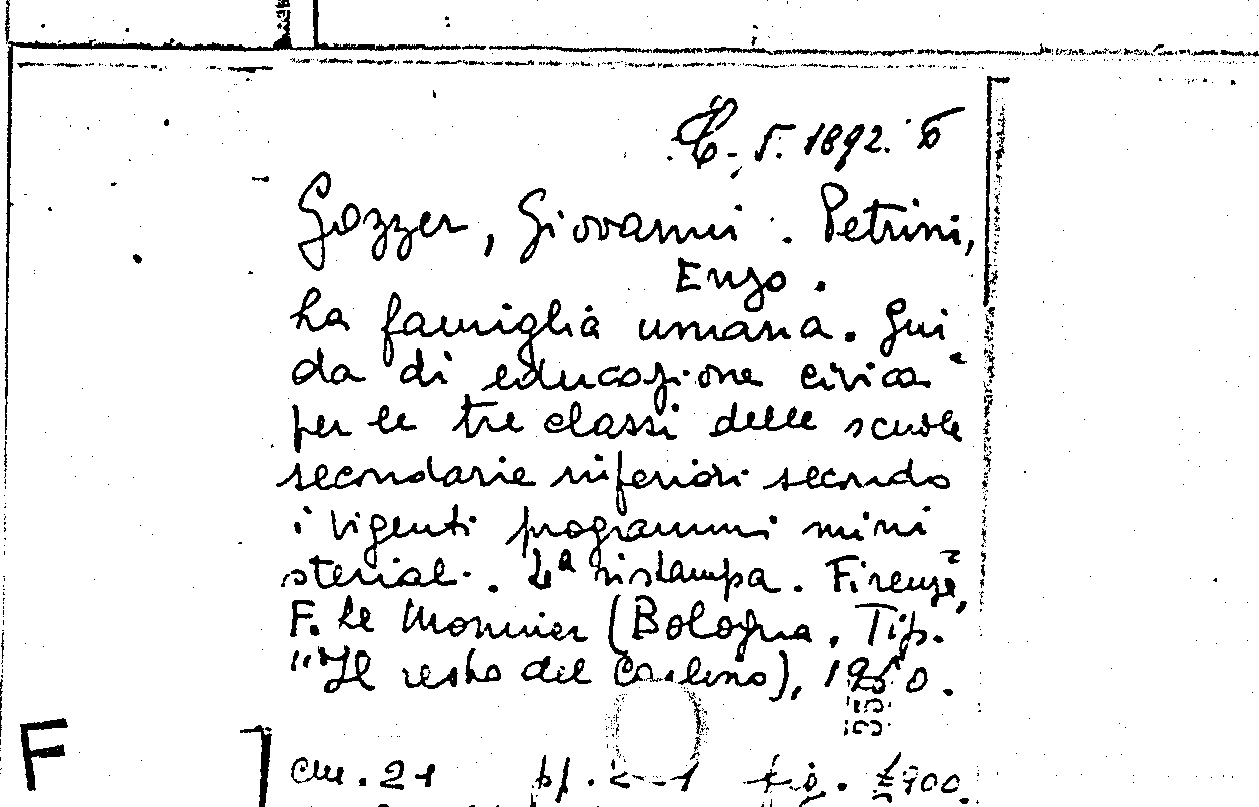 5. 1892. 6
Gozzer, Giovanni. Petrini,
Enzo.
La famiglia umana. Gui
da di educazione civica
per le tre classi delle scuole
secondarie inferiori secondo
i vigenti programmi mini
steriali. 4ª ristampa. Firenze,
F. Le Monnier (Bologna, Tip.
"Il resto del Carlino), 1960.
F
cm. 21 pp. fig. £900.